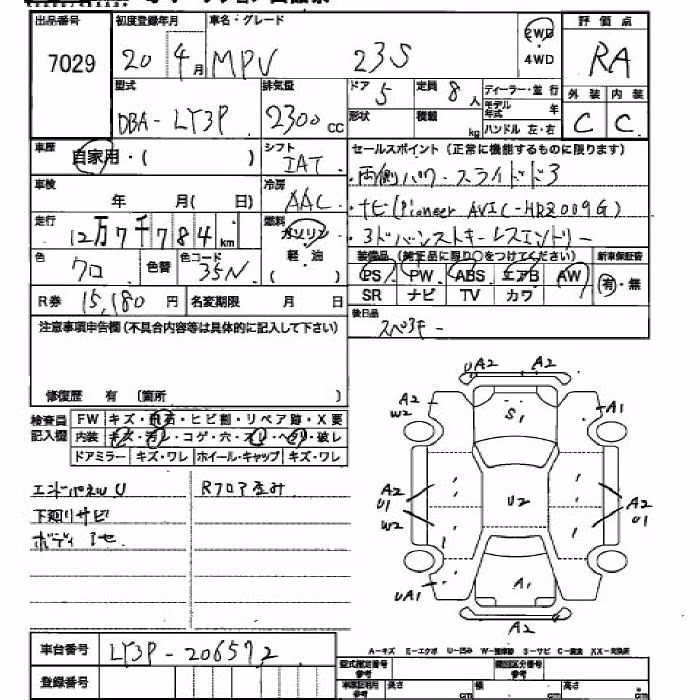 出品番号 初度登録年月 車名・グレード 評価点
7029 20 4月 MPV 23S 2WD 4WD RA
型式 排気量 ドア 5 定員 8人 ディーラー・並行 外装 内装
DBA-LY3P 2300cc 形状 積載 kg モデル年式 年 ハンドル 左・右 C C
車歴 自家用・( ) シフト IAT セールスポイント(正常に機能するものに限ります)
車検 年 月( 日) 冷房 AAC ・両側パワースライドドア
走行 12万7千784km 燃料 ガソリン 軽油 ・ナビ(Pioneer AVIC-HRZ009G)
・アドバンストキーレスエントリー
色 クロ 色替 色コード 35N 装備品(純正品に限り○をつけてください) 新車保証書
PS PW ABS エアB AW 有・無
SR ナビ TV カワ
R券 15,180円 名変期限 月 日
後日品
スペアキー
注意事項申告欄(不具合内容等は具体的に記入して下さい)
修復歴 有 (箇所 )
検査員記入欄 FW キズ・飛石・ヒビ割・リペア跡・X要
内装 キズ・汚レ・コゲ・穴・スレ・ヘタリ・破レ
ドアミラー キズ・ワレ ホイール・キャップ キズ・ワレ
エンドパネルU Rフロア歪み
下廻リサビ
ボディ
UA2 A2
A2 W2 S1 A1
A2 U1 U2 A2 U1
W2
UA1 A1
A2
A-キズ E-エクボ U-凹み S-サビ C-腐食 XX-交換済
車台番号 LY3P-206572
登録番号
型式指定番号 参考 類別区分番号 参考
長さ cm 幅 cm 高さ cm